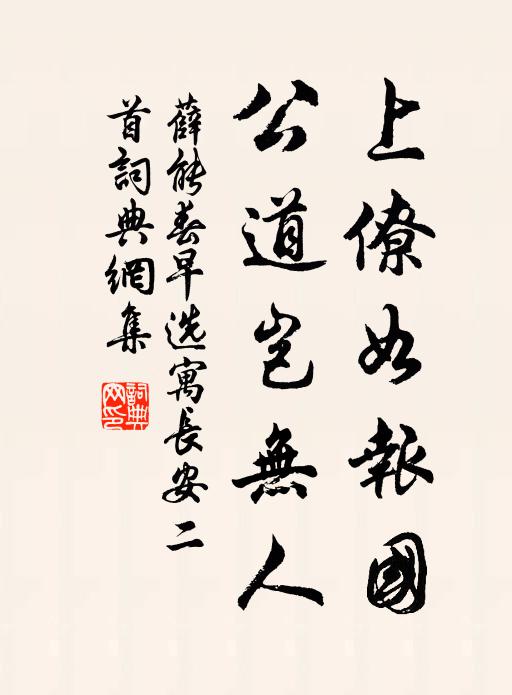 上僚如報國
公道豈無人
薛能春早选寓長安二
首詞典網集
詞典
网印